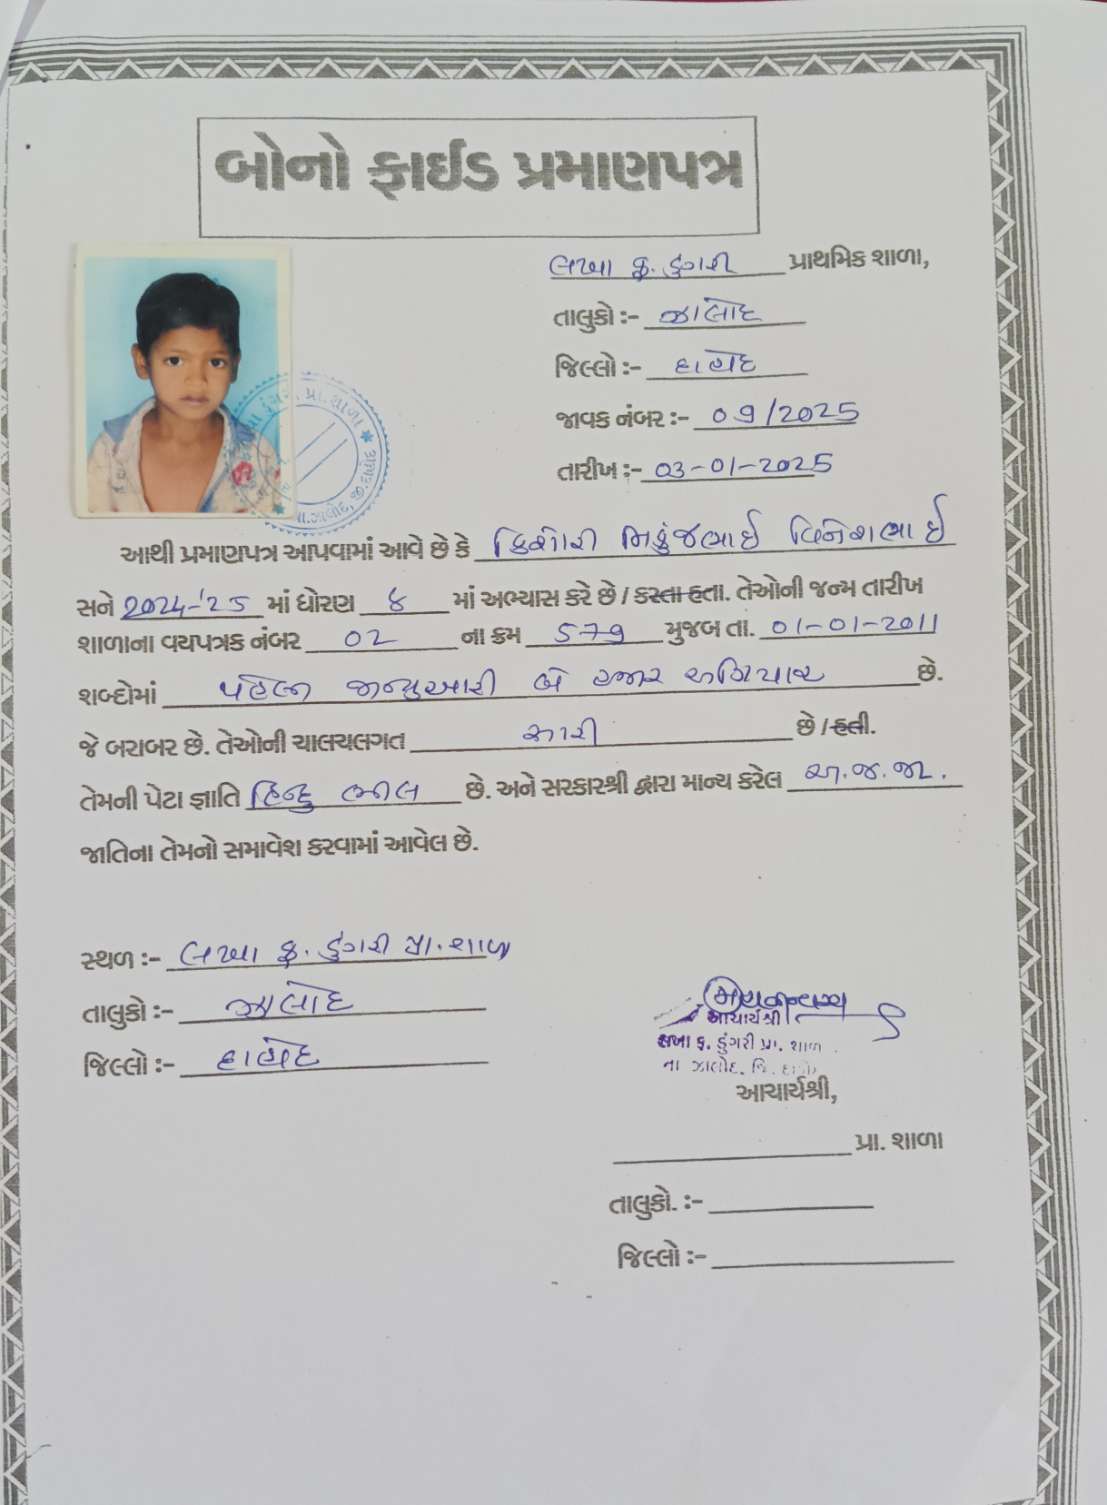 બોનો ફાઈડ પ્રમાણપત્ર
લખા ફ. ડુંગરી પ્રાથમિક શાળા,
તાલુકો :- ઝાલોદ
જિલ્લો :- દાહોદ
જાવક નંબર :- ૦૭/2025
તારીખ :- 03-01-2025
આથી પ્રમાણપત્ર આપવામાં આવે છે કે કિશોરી નિકુંજભાઈ દિનેશભાઈ
સને 2024-'25 માં ધોરણ ૪ માં અભ્યાસ કરે છે / કરતા હતા. તેઓની જન્મ તારીખ
શાળાના વયપત્રક નંબર 02 ના ક્રમ 579 મુજબ તા. 01-01-2011
શબ્દોમાં પહેલી જાન્યુઆરી બે હજાર અગિયાર છે.
જે બરાબર છે. તેઓની ચાલચલગત સારી છે / હતી.
તેમની પેટા જ્ઞાતિ હિન્દુ ભીલ છે. અને સરકારશ્રી દ્વારા માન્ય કરેલ અ.જ.જા.
જાતિના તેમનો સમાવેશ કરવામાં આવેલ છે.
સ્થળ :- લખા ફ. ડુંગરી પ્રા. શાળા
તાલુકો :- ઝાલોદ
જિલ્લો :- દાહોદ
આચાર્યશ્રી
લખા ફ. ડુંગરી પ્રા. શાળા
તા ઝાલોદ. જિ. દાહોદ
આચાર્યશ્રી,
પ્રા. શાળા
તાલુકો. :-
જિલ્લો :-